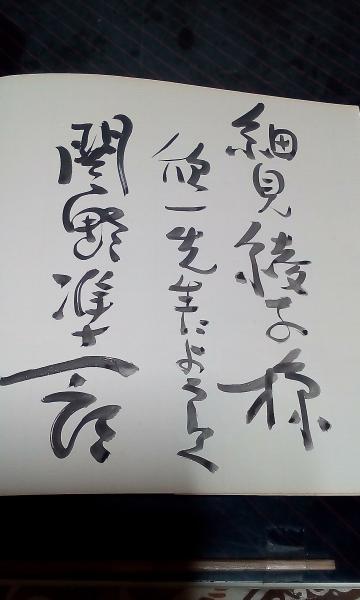 細見綾子様
欣一先生によろしく
関野準一郎